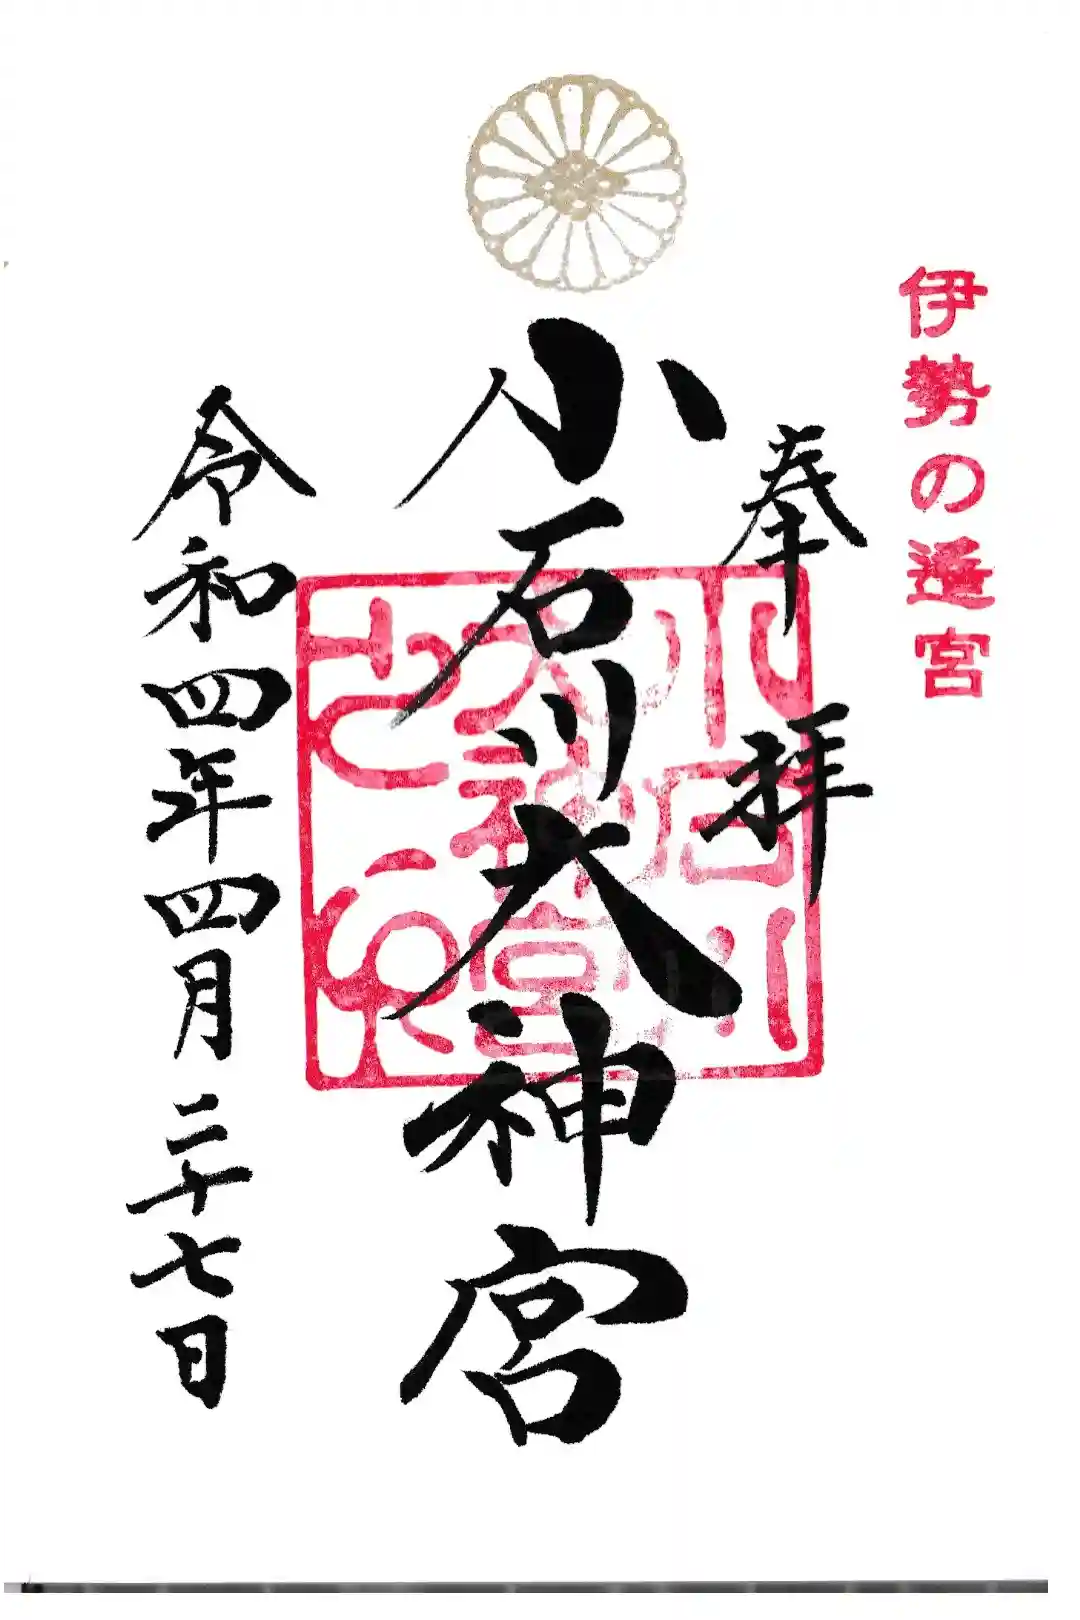 伊勢の遥宮
奉拝
小石川大神宮
令和四年四月二十七日
小石川
大神宮